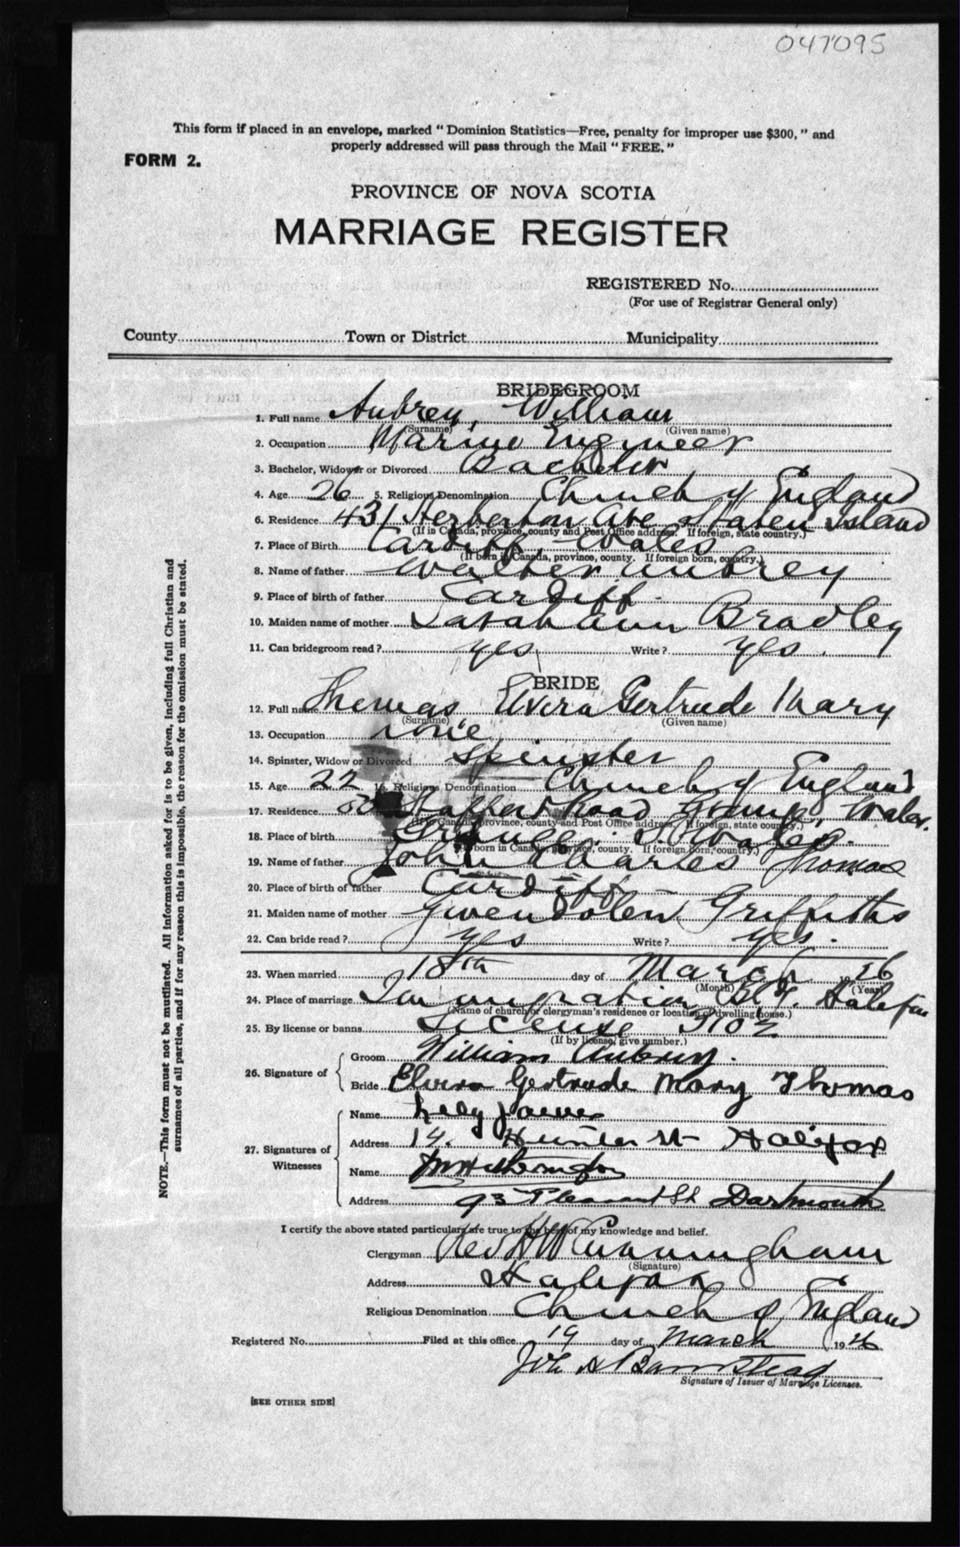 047095
This form if placed in an envelope, marked "Dominion Statistics—Free, penalty for improper use $300," and
properly addressed will pass through the Mail "FREE."
FORM 2.
PROVINCE OF NOVA SCOTIA
MARRIAGE REGISTER
REGISTERED No.
(For use of Registrar General only)
County Town or District Municipality
BRIDEGROOM
1. Full name Aubrey, William
(Surname) (Given name)
2. Occupation Marine Engineer
3. Bachelor, Widower or Divorced Bachelor
4. Age 26 5. Religious Denomination Church of England
6. Residence 431 Herberton Ave Staten Island
(If in Canada, province, county and Post Office address. If foreign, state country.)
7. Place of Birth Cardiff Wales
(If born in Canada, province, county. If foreign born, country.)
8. Name of father Walter Aubrey
9. Place of birth of father Cardiff
10. Maiden name of mother Sarah Ann Bradley
11. Can bridegroom read? yes Write? yes.
BRIDE
12. Full name Thomas Elvira Gertrude Mary
(Surname) (Given name)
13. Occupation none
14. Spinster, Widow or Divorced Spinster
15. Age 22 16. Religious Denomination Church of England
17. Residence Road Wales.
(If in Canada, province, county and Post Office address. If foreign, state country.)
18. Place of birth Wales.
(If born in Canada, province, county. If foreign born, country.)
19. Name of father John Charles Thomas
20. Place of birth of father Cardiff
21. Maiden name of mother Gwendolen Griffiths
22. Can bride read? yes Write? yes.
23. When married 18th day of March 1926
(Month) (Year)
24. Place of marriage Immigration Bldg. Halifax
(Name of church or clergyman's residence or location of dwelling house.)
25. By license or banns License
(If by license, give number.)
26. Signature of
Groom William Aubrey.
Bride Elvira Gertrude Mary Thomas
27. Signatures of Witnesses
Name
Address 14. St Halifax
Name
Address 93 Pleasant St Dartmouth
I certify the above stated particulars are true to the best of my knowledge and belief.
Clergyman Rev Cunningham
(Signature)
Address Halifax
Religious Denomination Church of England
Registered No. Filed at this office 19 day of March 1926
Signature of Issuer of Marriage Licenses.
[SEE OTHER SIDE]
NOTE.—This form must not be mutilated. All information asked for is to be given, including full Christian and
surnames of all parties, and if for any reason this is impossible, the reason for the omission must be stated.